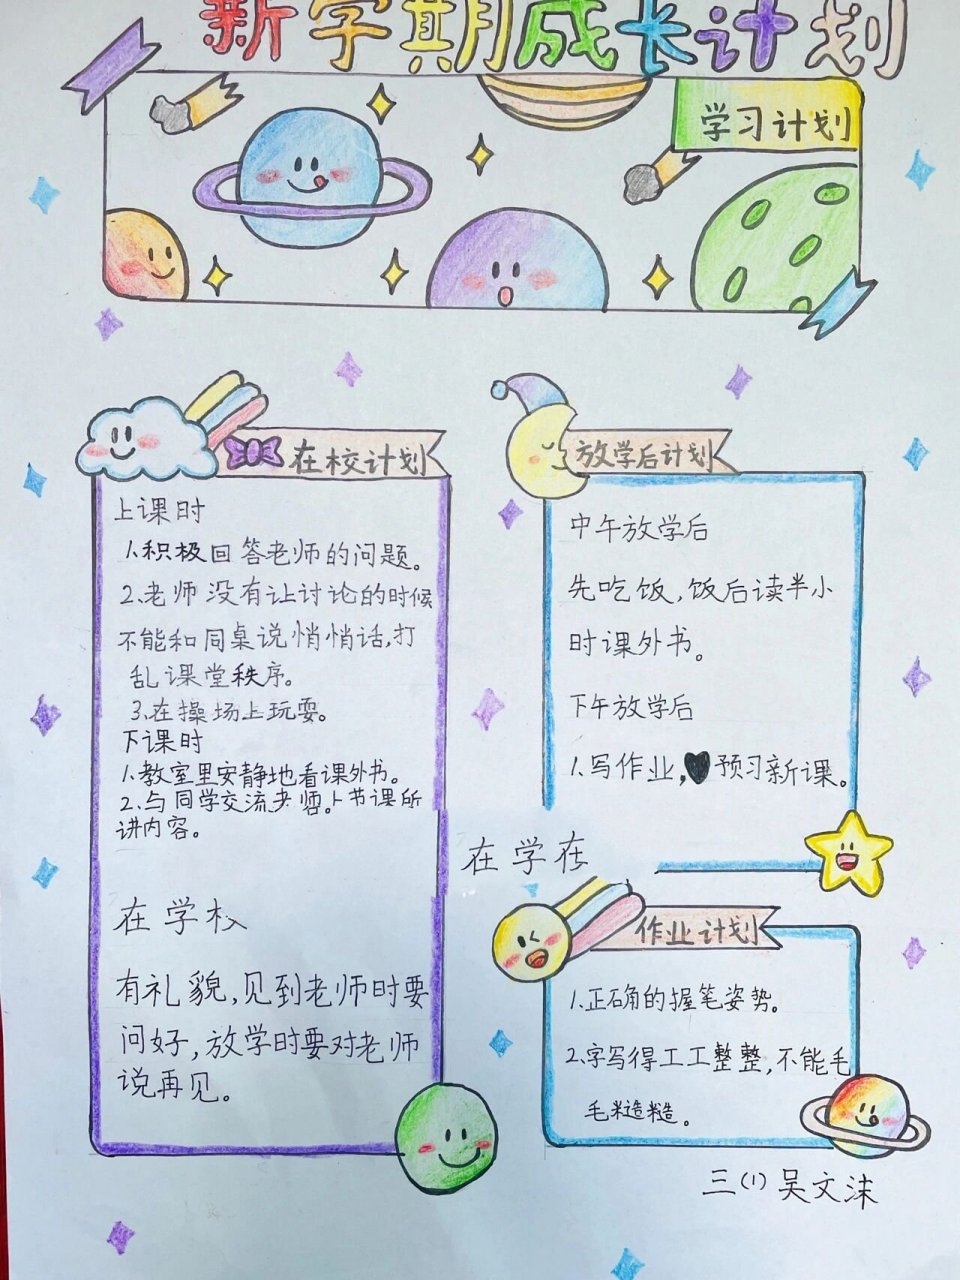 新学期成长计划
学习计划
在校计划
上课时
1.积极回答老师的问题。
2.老师没有让讨论的时候
不能和同桌说悄悄话,打
乱课堂秩序。
3.在操场上玩耍。
下课时
1.教室里安静地看课外书。
2.与同学交流老师上节课所
讲内容。
在学校
有礼貌,见到老师时要
问好,放学时要对老师
说再见。
放学后计划
中午放学后
先吃饭,饭后读半小
时课外书。
下午放学后
1.写作业,预习新课。
在学在
作业计划
1.正确的握笔姿势。
2.字写得工工整整,不能毛
毛糙糙。
三(1)吴文沫